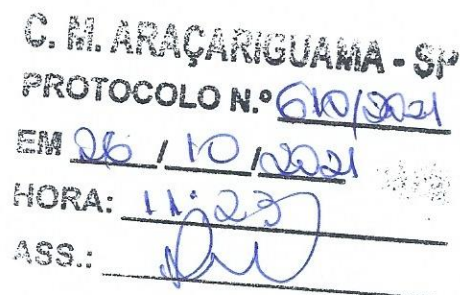 C. M. ARAÇARIGUAMA - SP
PROTOCOLO N.º 610/2021
EM 26 / 10 / 2021
HORA: 11:23
ASS.: